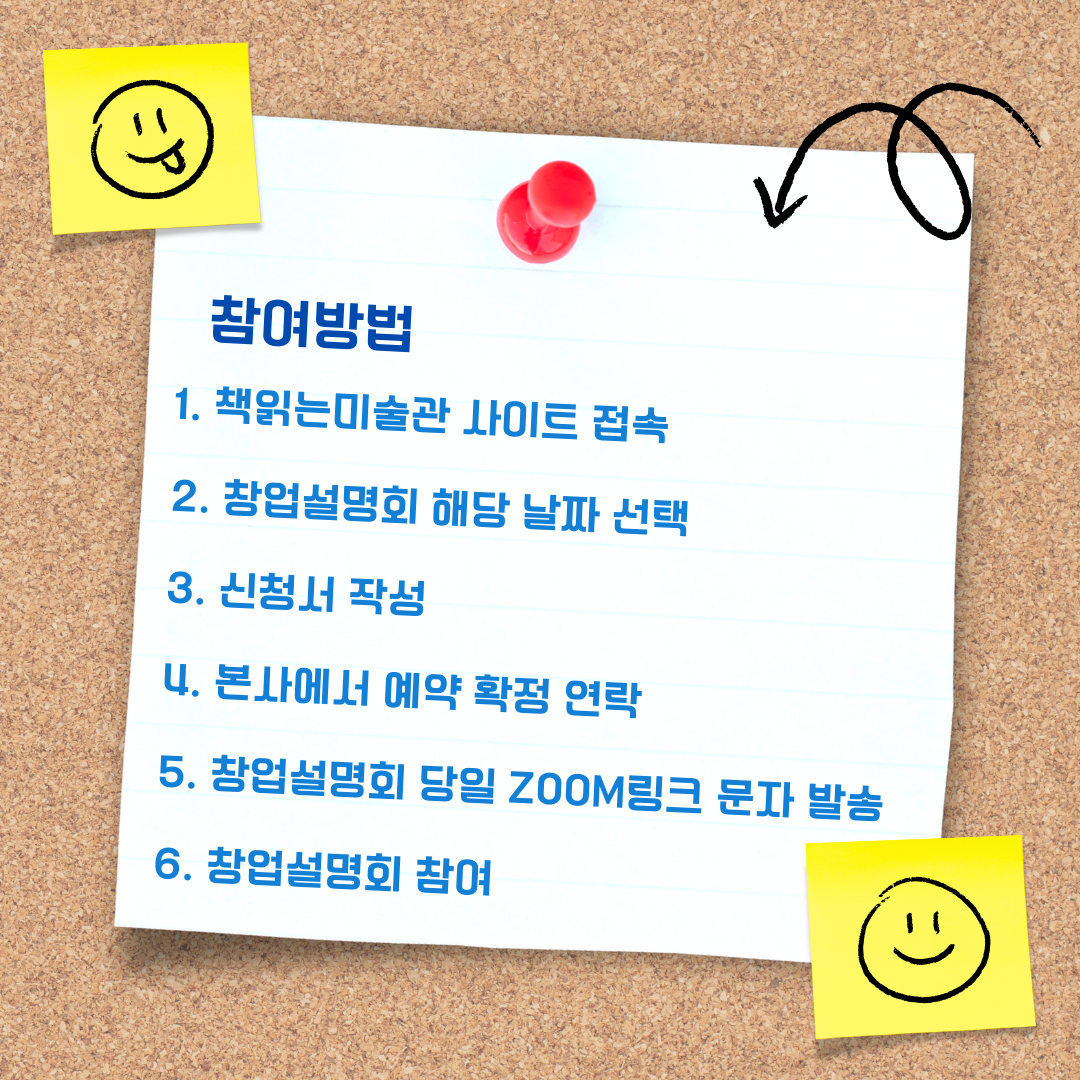 참여방법
1. 책읽는미술관 사이트 접속
2. 창업설명회 해당 날짜 선택
3. 신청서 작성
4. 본사에서 예약 확정 연락
5. 창업설명회 당일 ZOOM링크 문자 발송
6. 창업설명회 참여